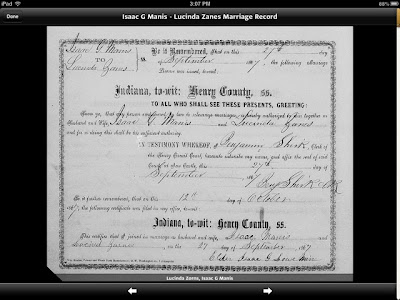 iPad 3:07 PM 88%
Done Isaac G Manis - Lucinda Zanes Marriage Record
Isaac G. Manis
TO
Lucinda Zanes
Be it Remembered, That on this 27th day
of September 1867, the following Marriage
License was issued, to-wit:
Indiana, to-wit: Henry County, ss.
TO ALL WHO SHALL SEE THESE PRESENTS, GREETING:
Know ye, that any person empowered by law to solemnize marriages, is hereby authorized to join together as
Husband and Wife, Isaac G. Manis and Lucinda Zanes
and for so doing this shall be his sufficient authority.
IN TESTIMONY WHEREOF, I, Benjamin Shirk, Clerk of
the Henry Circuit Court, hereunto subscribe my name, and affix the seal of said
Court at New Castle, this 27th day of
September 1867 Benj Shirk Clk
Be it further remembered, that on this 12th day of October
1867, the following certificate was filed in my office, to-wit:
Indiana, to-wit: Henry County, ss.
This certifies that I joined in marriage as husband and wife, Isaac Manis and
Lucinda Zanes on the 27 day of September 1867
Elder Isaac G
Lucinda Zanes, Isaac G Manis